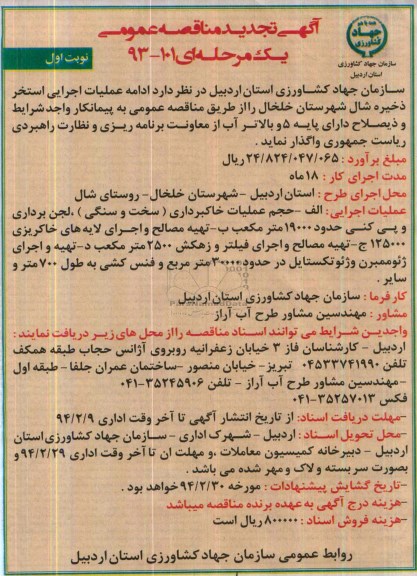 آگهی تجدید مناقصه عمومی
یک مرحله‌ای ۱۰۱-۹۳
نوبت اول
همه با هم
جهاد
کشاورزی
سازمان جهاد کشاورزی
استان اردبیل
سازمان جهاد کشاورزی استان اردبیل در نظر دارد ادامه عملیات اجرایی استخر
ذخیره شال شهرستان خلخال رااز طریق مناقصه عمومی به پیمانکار واجد شرایط
و ذیصلاح دارای پایه ۵ و بالاتر آب از معاونت برنامه ریزی و نظارت راهبردی
ریاست جمهوری واگذار نماید .
مبلغ برآورد : ۲۴/۸۲۴/۰۴۷/۰۶۵ ریال
مدت اجرای کار : ۱۸ ماه
محل اجرای طرح : استان اردبیل - شهرستان خلخال- روستای شال
عملیات اجرایی: الف -حجم عملیات خاکبرداری ( سخت و سنگی ) ،لجن برداری
و پی کنی حدود ۱۹۰۰۰ متر مکعب ب-تهیه مصالح و اجرای لایه های خاکریزی
۱۲۵۰۰۰ ج-تهیه مصالح و اجرای فیلتر و زهکش ۲۵۰۰ متر مکعب د-تهیه و اجرای
ژئوممبرن وژئوتکستایل در حدود ۳۰۰۰۰ متر مربع و فنس کشی به طول ۷۰۰ متر و
سایر .
کار فرما : سازمان جهاد کشاورزی استان اردبیل
مشاور : مهندسین مشاور طرح آب آراز
واجدین شرایط می توانند اسناد مناقصه رااز محل های زیر دریافت نمایند :
اردبیل - کارشناسان فاز ۳ خیابان زعفرانیه روبروی آژانس حجاب طبقه همکف
تلفن ۰۴۵۳۳۷۴۱۹۹۰ تبریز- خیابان منصور -ساختمان عمران جلفا- طبقه اول
-مهندسین مشاور طرح آب آراز - تلفن ۳۵۲۴۵۹۰۶-۰۴۱
فکس ۳۵۲۵۷۰۱۳-۰۴۱
-مهلت دریافت اسناد: از تاریخ انتشار آگهی تا آخر وقت اداری ۹۴/۲/۹
-محل تحویل اسناد : اردبیل - شهرک اداری - سازمان جهاد کشاورزی استان
اردبیل - دبیرخانه کمیسیون معاملات ،و مهلت ان تا آخر وقت اداری ۹۴/۲/۲۹ و
بصورت سر بسته و لاک و مهر شده می باشد .
-تاریخ گشایش پیشنهادات : مورخه ۹۴/۲/۳۰ خواهد بود .
-هزینه درج آگهی به عهده برنده مناقصه میباشد
-هزینه فروش اسناد : ۸۰۰۰۰۰ ریال است
روابط عمومی سازمان جهاد کشاورزی استان اردبیل